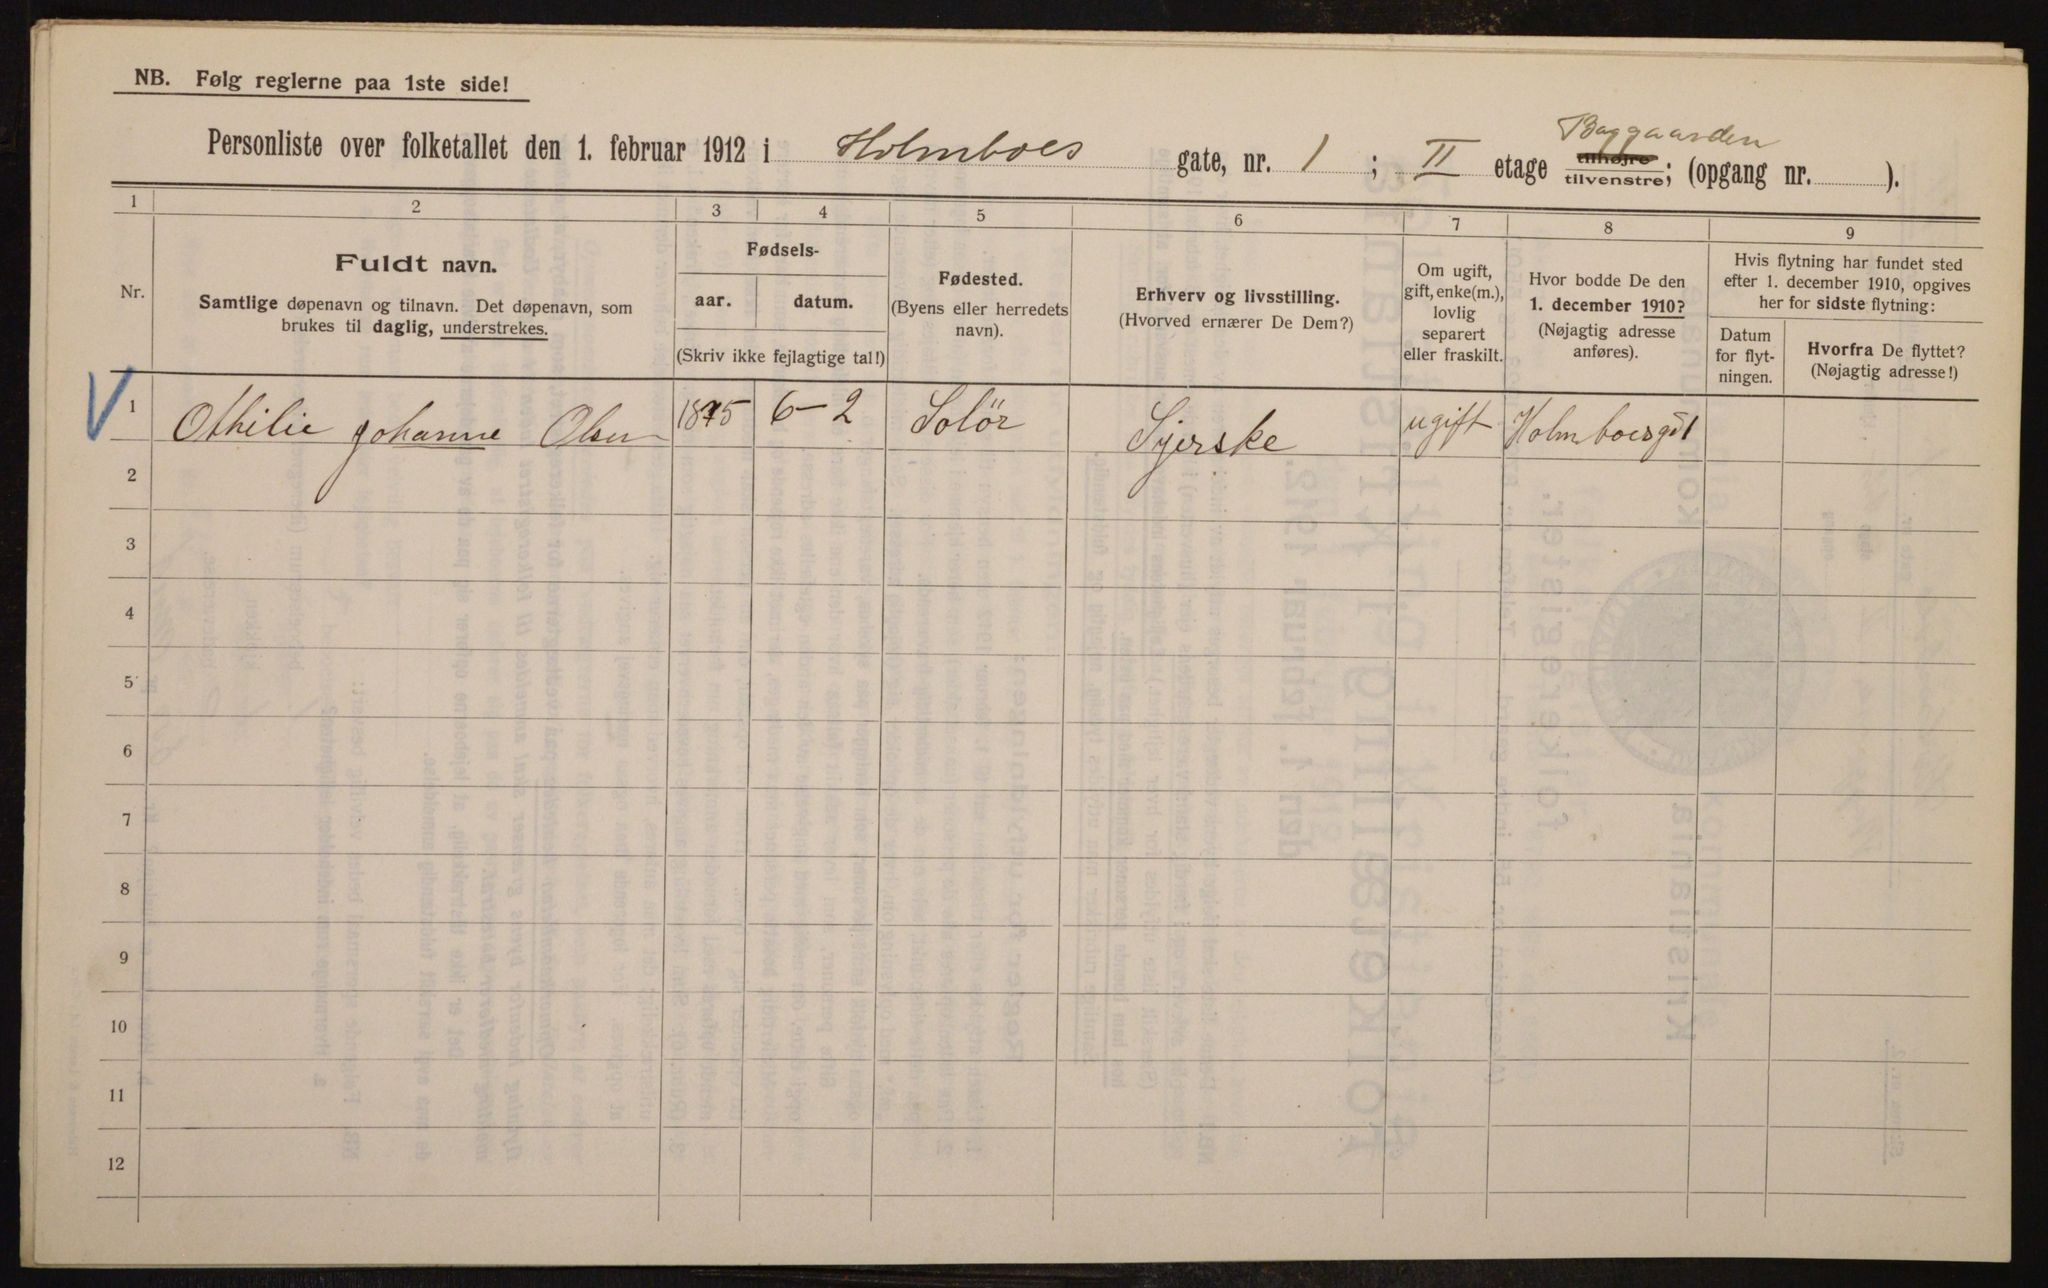 NB. Følg reglerne paa 1ste side!
Baggaarden
Personliste over folketallet den 1. februar 1912 i Holmboes gate, nr. 1 ; II etage tilhøjre tilvenstre; (opgang nr. ).
1 2 3 4 5 6 7 8 9
Nr.
Fuldt navn.
Samtlige døpenavn og tilnavn. Det døpenavn, som
brukes til daglig, understrekes.
Fødsels-
aar. datum.
(Skriv ikke fejlagtige tal!)
Fødested.
(Byens eller herredets
navn).
Erhverv og livsstilling.
(Hvorved ernærer De Dem?)
Om ugift,
gift, enke(m.),
lovlig
separert
eller fraskilt.
Hvor bodde De den
1. december 1910?
(Nøjagtig adresse
anføres).
Hvis flytning har fundet sted
efter 1. december 1910, opgives
her for sidste flytning:
Datum
for flyt-
ningen.
Hvorfra De flyttet?
(Nøjagtig adresse!)
V 1 Othilie Johanne Olsen 1875 6-2 Solör Syerske ugift Holmboesgt 1
2
3
4
5
6
7
8
9
10
11
12